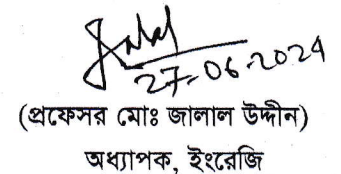 27-06-2024
(প্রফেসর মোঃ জালাল উদ্দীন)
অধ্যাপক, ইংরেজি